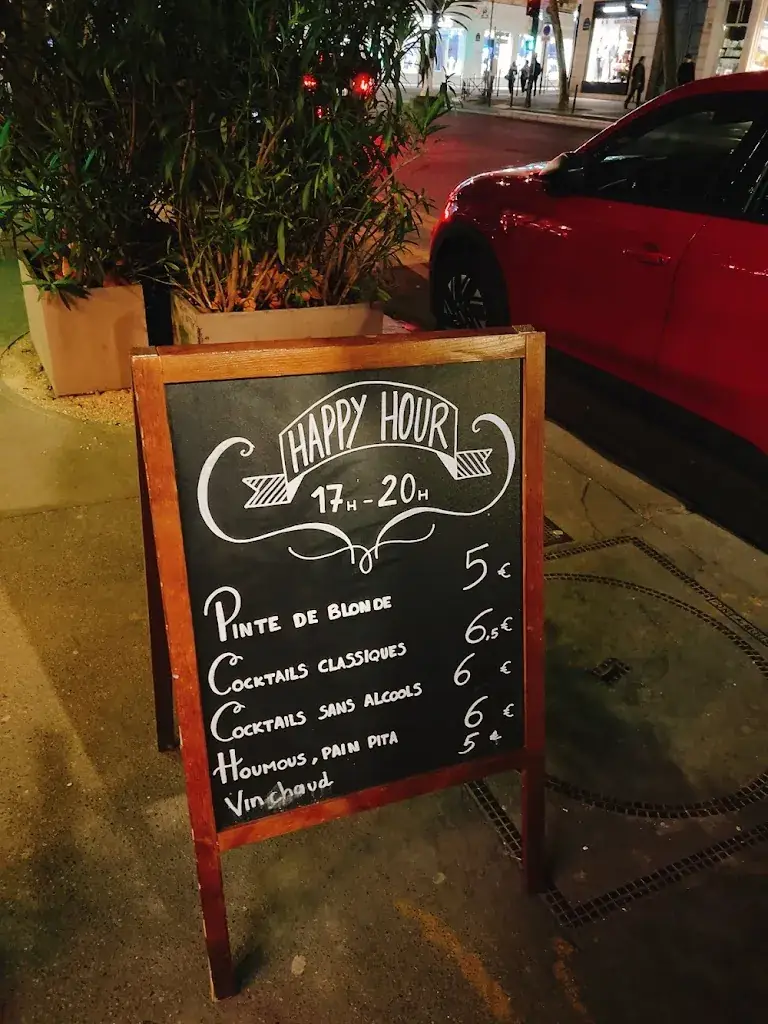 HAPPY HOUR
17H - 20H
PINTE DE BLONDE 5 €
COCKTAILS CLASSIQUES 6,5 €
COCKTAILS SANS ALCOOLS 6 €
HOUMOUS, PAIN PITA 6 €
Vin chaud 5 €